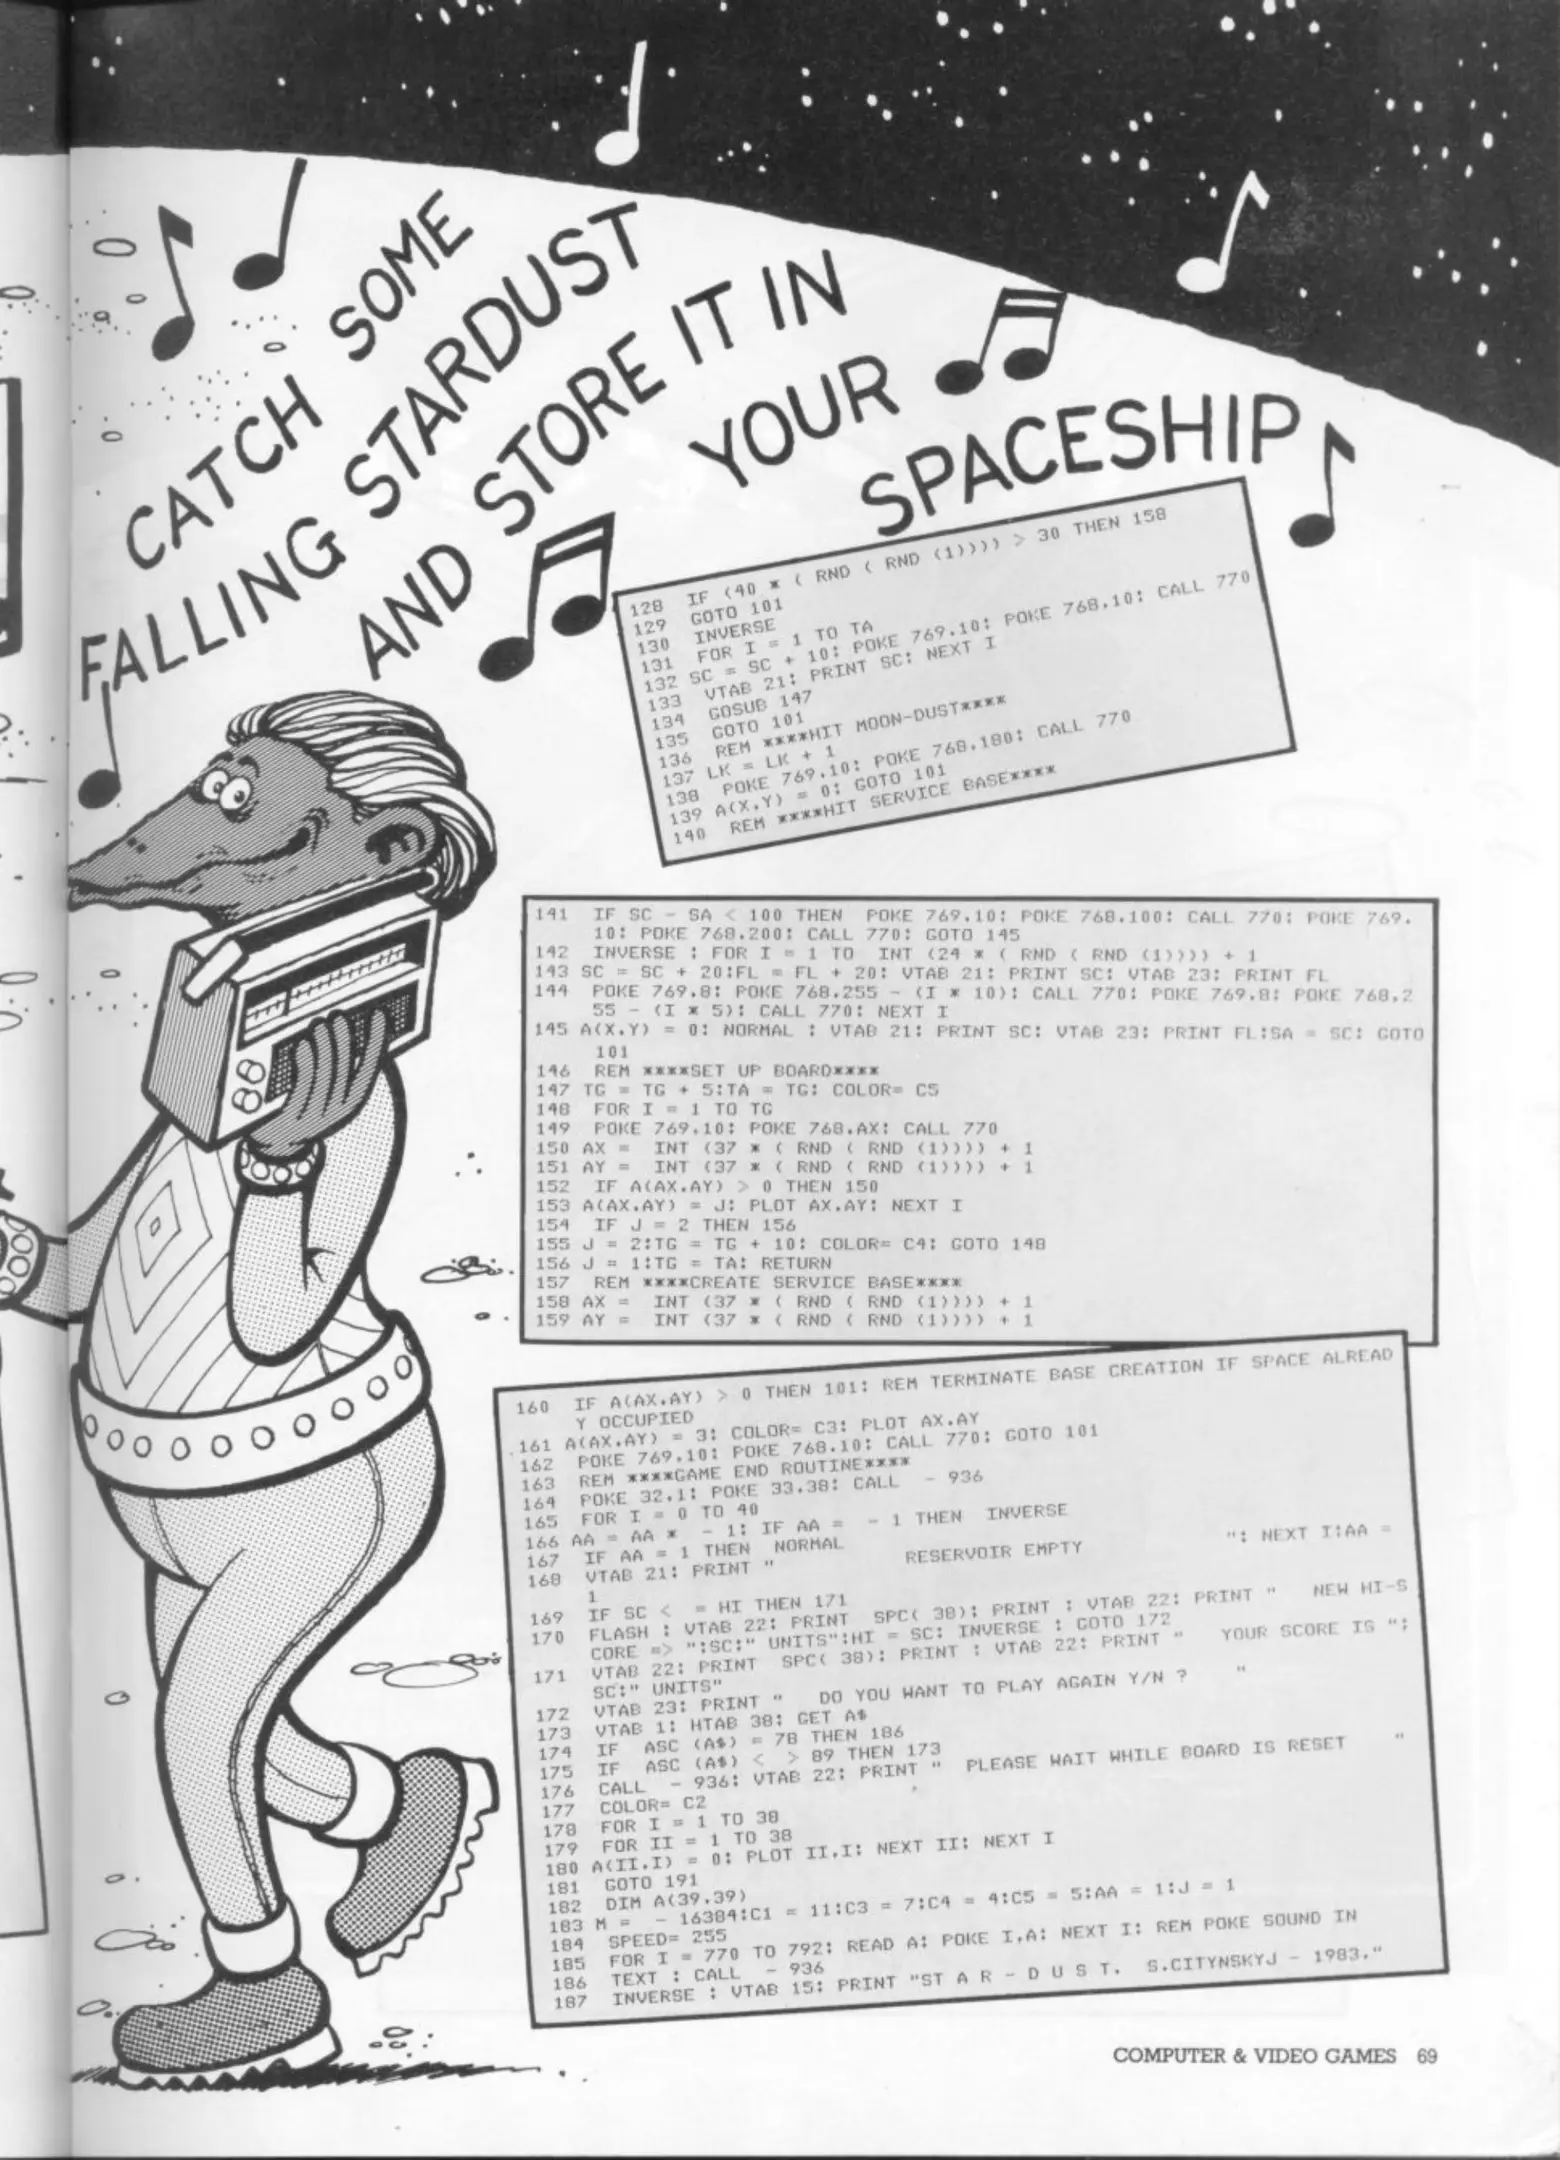 CATCH SOME
FALLING STARDUST
AND STORE IT IN
YOUR
SPACESHIP
128 IF (40 * ( RND ( RND (1)))) > 30 THEN 158
129 GOTO 101
130 INVERSE
131 FOR I = 1 TO TA
132 SC = SC + 10: POKE 769,10: POKE 768,10: CALL 770
133 VTAB 21: PRINT SC: NEXT I
134 GOSUB 147
135 GOTO 101
136 REM ****HIT MOON-DUST****
137 LK = LK + 1
138 POKE 769,10: POKE 768,180: CALL 770
139 A(X,Y) = 0: GOTO 101
140 REM ****HIT SERVICE BASE****
141 IF SC - SA < 100 THEN POKE 769,10: POKE 768,100: CALL 770: POKE 769,
10: POKE 768,200: CALL 770: GOTO 145
142 INVERSE : FOR I = 1 TO INT (24 * ( RND ( RND (1)))) + 1
143 SC = SC + 20:FL = FL + 20: VTAB 21: PRINT SC: VTAB 23: PRINT FL
144 POKE 769,8: POKE 768,255 - (I * 10): CALL 770: POKE 769,8: POKE 768,2
55 - (I * 5): CALL 770: NEXT I
145 A(X,Y) = 0: NORMAL : VTAB 21: PRINT SC: VTAB 23: PRINT FL:SA = SC: GOTO
101
146 REM ****SET UP BOARD****
147 TG = TG + 5:TA = TG: COLOR= C5
148 FOR I = 1 TO TG
149 POKE 769,10: POKE 768,AX: CALL 770
150 AX = INT (37 * ( RND ( RND (1)))) + 1
151 AY = INT (37 * ( RND ( RND (1)))) + 1
152 IF A(AX,AY) > 0 THEN 150
153 A(AX,AY) = J: PLOT AX,AY: NEXT I
154 IF J = 2 THEN 156
155 J = 2:TG = TG + 10: COLOR= C4: GOTO 148
156 J = 1:TG = TA: RETURN
157 REM ****CREATE SERVICE BASE****
158 AX = INT (37 * ( RND ( RND (1)))) + 1
159 AY = INT (37 * ( RND ( RND (1)))) + 1
160 IF A(AX,AY) > 0 THEN 101: REM TERMINATE BASE CREATION IF SPACE ALREAD
Y OCCUPIED
161 A(AX,AY) = 3: COLOR= C3: PLOT AX,AY
162 POKE 769,10: POKE 768,10: CALL 770: GOTO 101
163 REM ****GAME END ROUTINE****
164 POKE 32,1: POKE 33,38: CALL - 936
165 FOR I = 0 TO 40
166 AA = AA * - 1: IF AA = - 1 THEN INVERSE
167 IF AA = 1 THEN NORMAL
168 VTAB 21: PRINT " RESERVOIR EMPTY ": NEXT I:AA =
1
169 IF SC < = HI THEN 171
170 FLASH : VTAB 22: PRINT SPC( 38): PRINT : VTAB 22: PRINT " NEW HI-S
CORE => ";SC;" UNITS":HI = SC: INVERSE : GOTO 172
171 VTAB 22: PRINT SPC( 38): PRINT : VTAB 22: PRINT " YOUR SCORE IS ";
SC;" UNITS"
172 VTAB 23: PRINT " DO YOU WANT TO PLAY AGAIN Y/N ? "
173 VTAB 1: HTAB 38: GET A$
174 IF ASC (A$) = 78 THEN 186
175 IF ASC (A$) < > 89 THEN 173
176 CALL - 936: VTAB 22: PRINT " PLEASE WAIT WHILE BOARD IS RESET "
177 COLOR= C2
178 FOR I = 1 TO 38
179 FOR II = 1 TO 38
180 A(II,I) = 0: PLOT II,I: NEXT II: NEXT I
181 GOTO 191
182 DIM A(39,39)
183 M = - 16384:C1 = 11:C3 = 7:C4 = 4:C5 = 5:AA = 1:J = 1
184 SPEED= 255
185 FOR I = 770 TO 792: READ A: POKE I,A: NEXT I: REM POKE SOUND IN
186 TEXT : CALL - 936
187 INVERSE : VTAB 15: PRINT "ST A R - D U S T. S.CITYNSKYJ - 1983."
COMPUTER & VIDEO GAMES 69